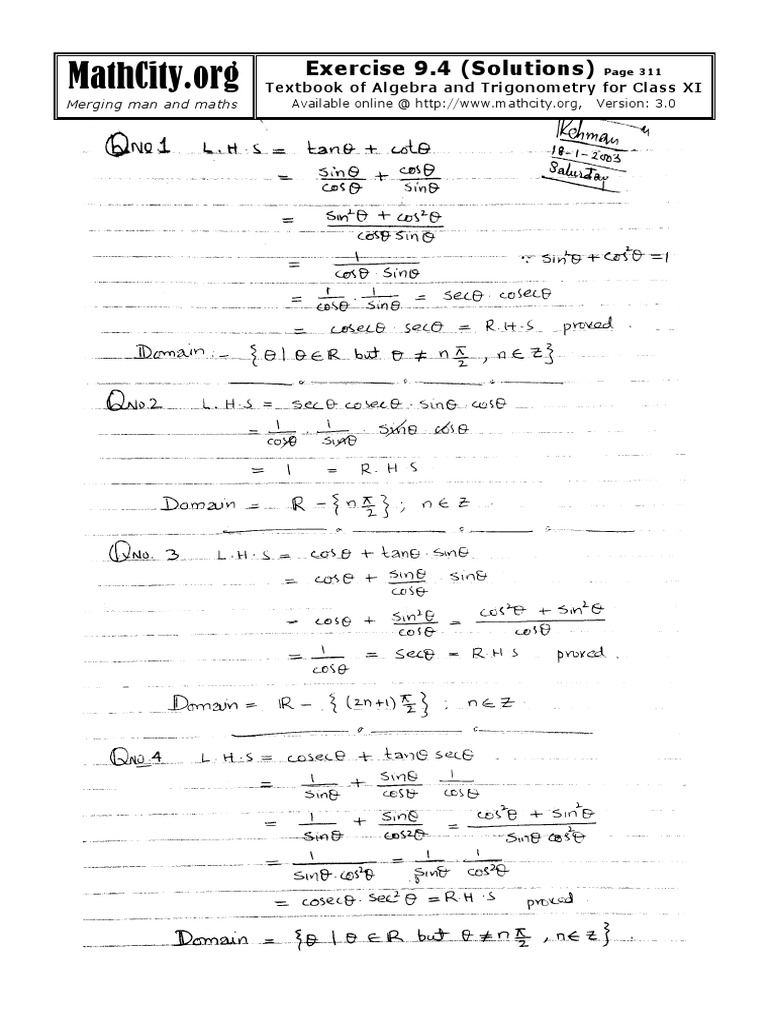 MathCity.org
Merging man and maths
Exercise 9.4 (Solutions) Page 311
Textbook of Algebra and Trigonometry for Class XI
Available online @ http://www.mathcity.org, Version: 3.0
Rehman
18-1-2003
Saturday
QNO1 L.H.S = tanθ + cotθ
= sinθ/cosθ + cosθ/sinθ
= sin²θ + cos²θ / cosθ sinθ
= 1/cosθ · sinθ ∵ sin²θ + cos²θ = 1
= 1/cosθ · 1/sinθ = secθ · cosecθ
= cosecθ · secθ = R.H.S proved.
Domain:- {θ | θ ∈ R but θ ≠ n π/2 , n ∈ Z}
QNO.2 L.H.S = secθ cosecθ · sinθ cosθ
= 1/cosθ · 1/sinθ · sinθ cosθ
= 1 = R.H.S
Domain = R - {n π/2} ; n ∈ Z
QNO. 3 L.H.S = cosθ + tanθ · sinθ
= cosθ + sinθ/cosθ · sinθ
= cosθ + sin²θ/cosθ = cos²θ + sin²θ / cosθ
= 1/cosθ = secθ = R.H.S proved.
Domain = R - {(2n+1) π/2} ; n ∈ Z
QNO.4 L.H.S = cosecθ + tanθ secθ
= 1/sinθ + sinθ/cosθ 1/cosθ
= 1/sinθ + sinθ/cos2θ = cos²θ + sin²θ / sinθ cos²θ
= 1/sinθ·cos²θ = 1/sinθ · 1/cos²θ
= cosecθ · sec²θ = R.H.S proved.
Domain = {θ | θ ∈ R but θ ≠ n π/2 , n ∈ Z}.